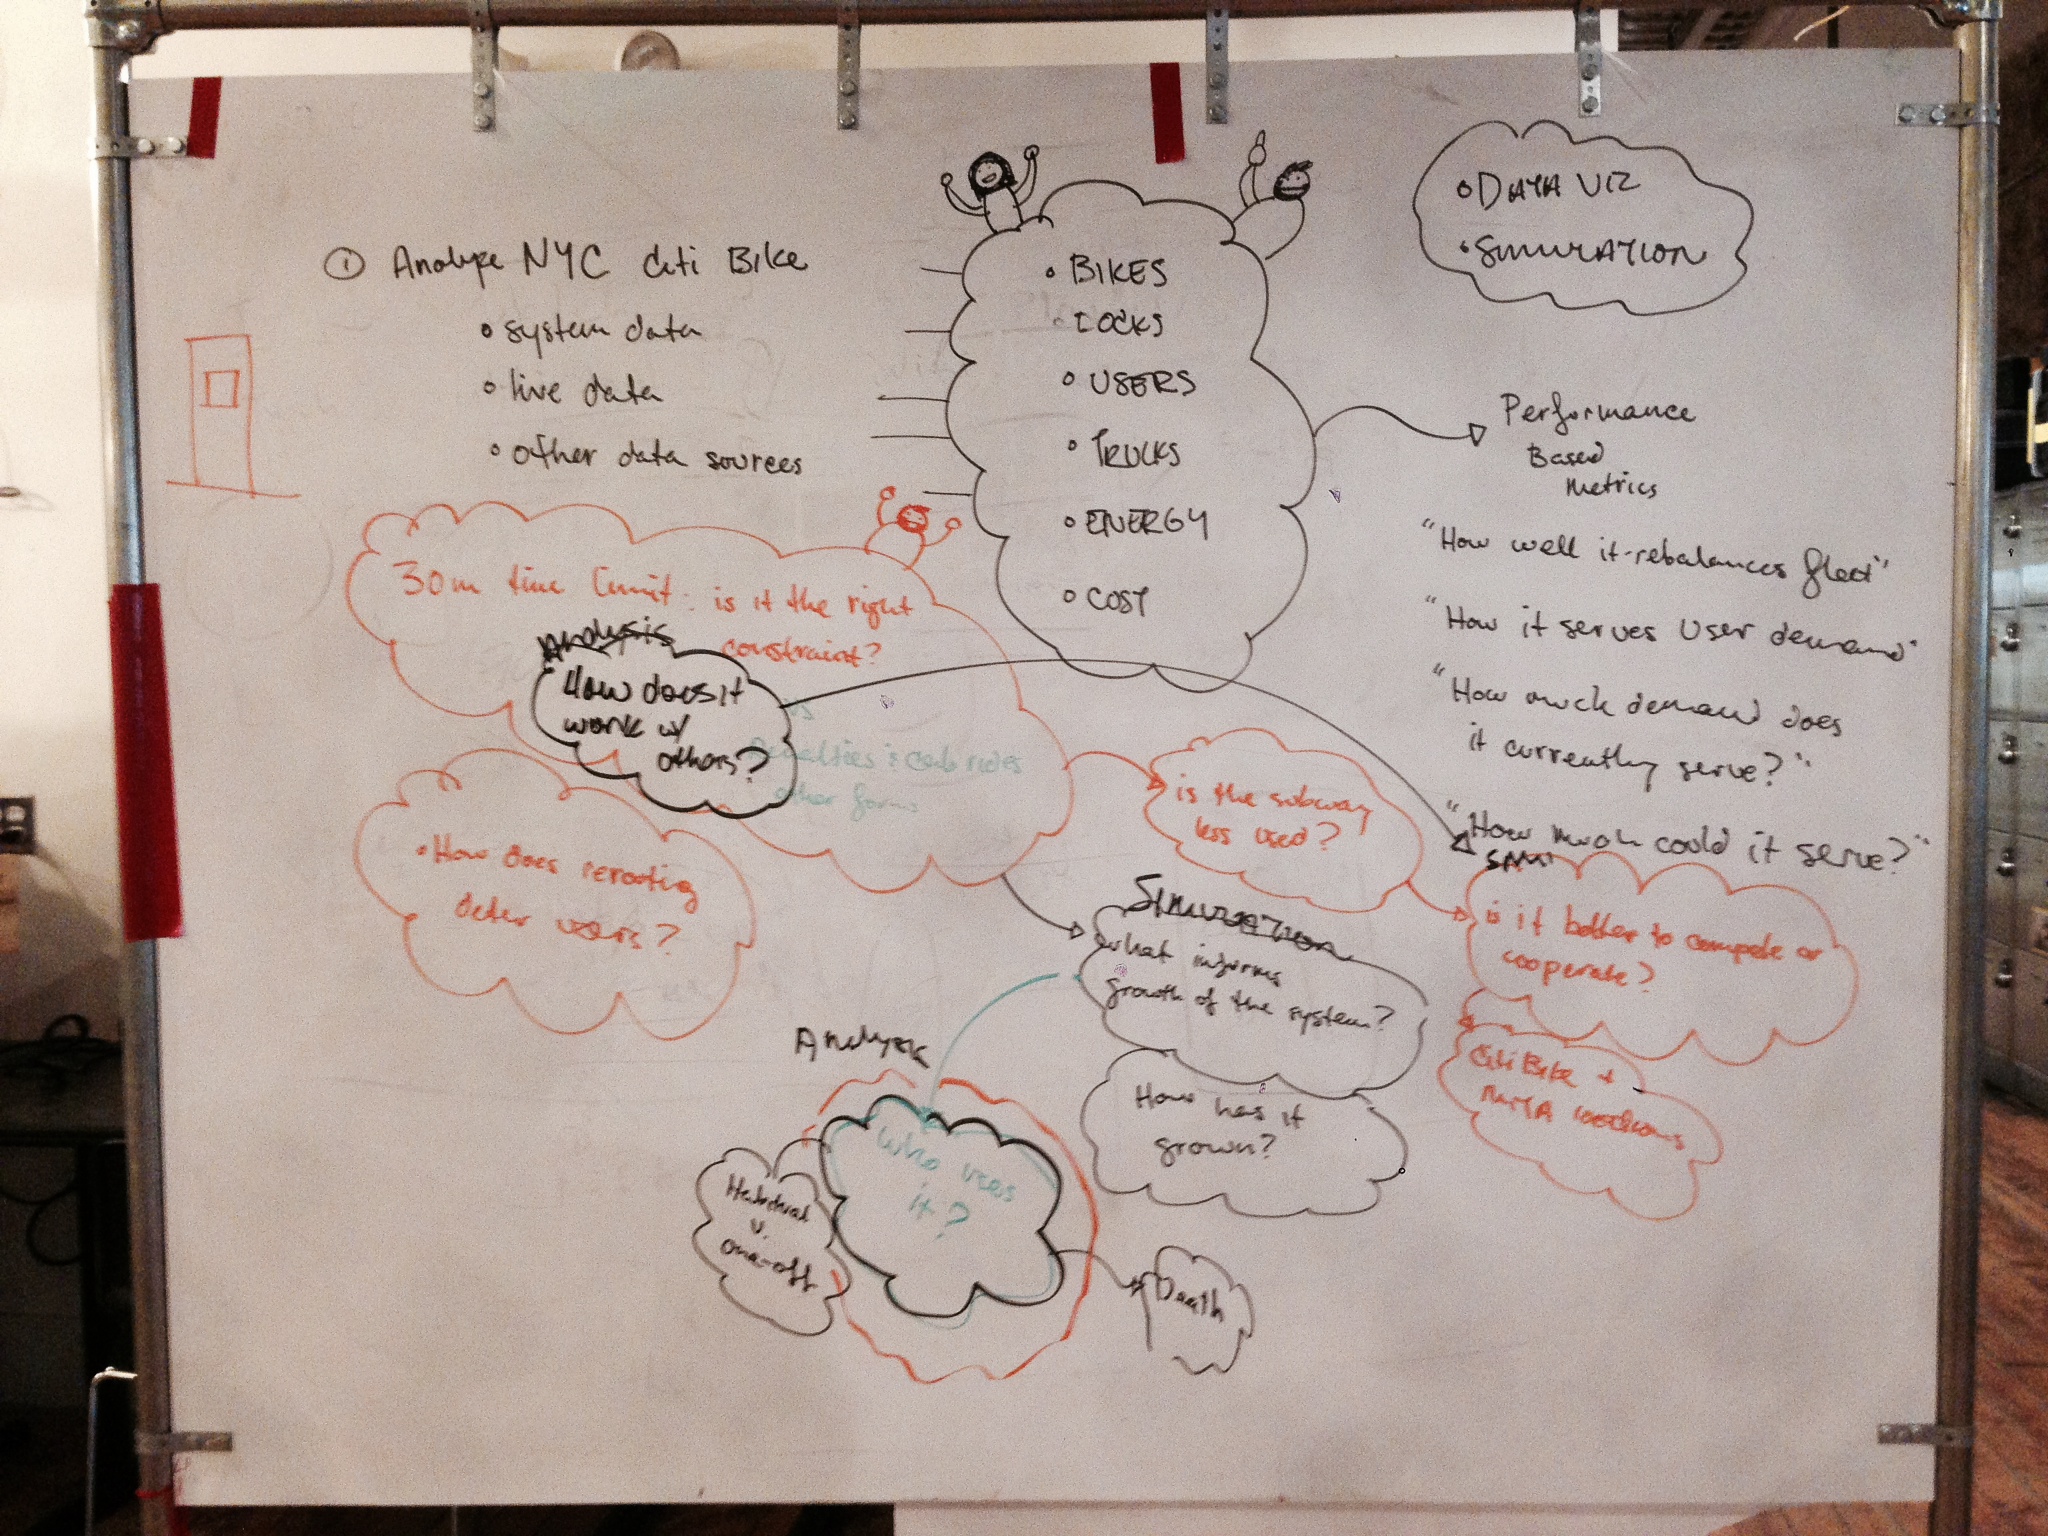 ① Analyze NYC Citi Bike
• system data
• live data
• other data sources
• BIKES
• DOCKS
• USERS
• TRUCKS
• ENERGY
• COST
• DATA VIZ
• SIMULATION
Performance
Based
Metrics
"How well it rebalances fleet"
"How it serves User demand"
"How much demand does
it currently serve?"
"How much could it serve?"
30m time limit: is it the right
constraint?
Analysis
How does it
work w/
others?
Penalties: cab rides
other forms
• How does rerouting
deter users?
is the subway
less used?
SIM
is it better to compete or
cooperate?
Citi Bike +
MTA locations
SIMULATION
what informs
growth of the system?
How has it
grown?
Analysis
who uses
it?
Habitual
v.
one-off
Death